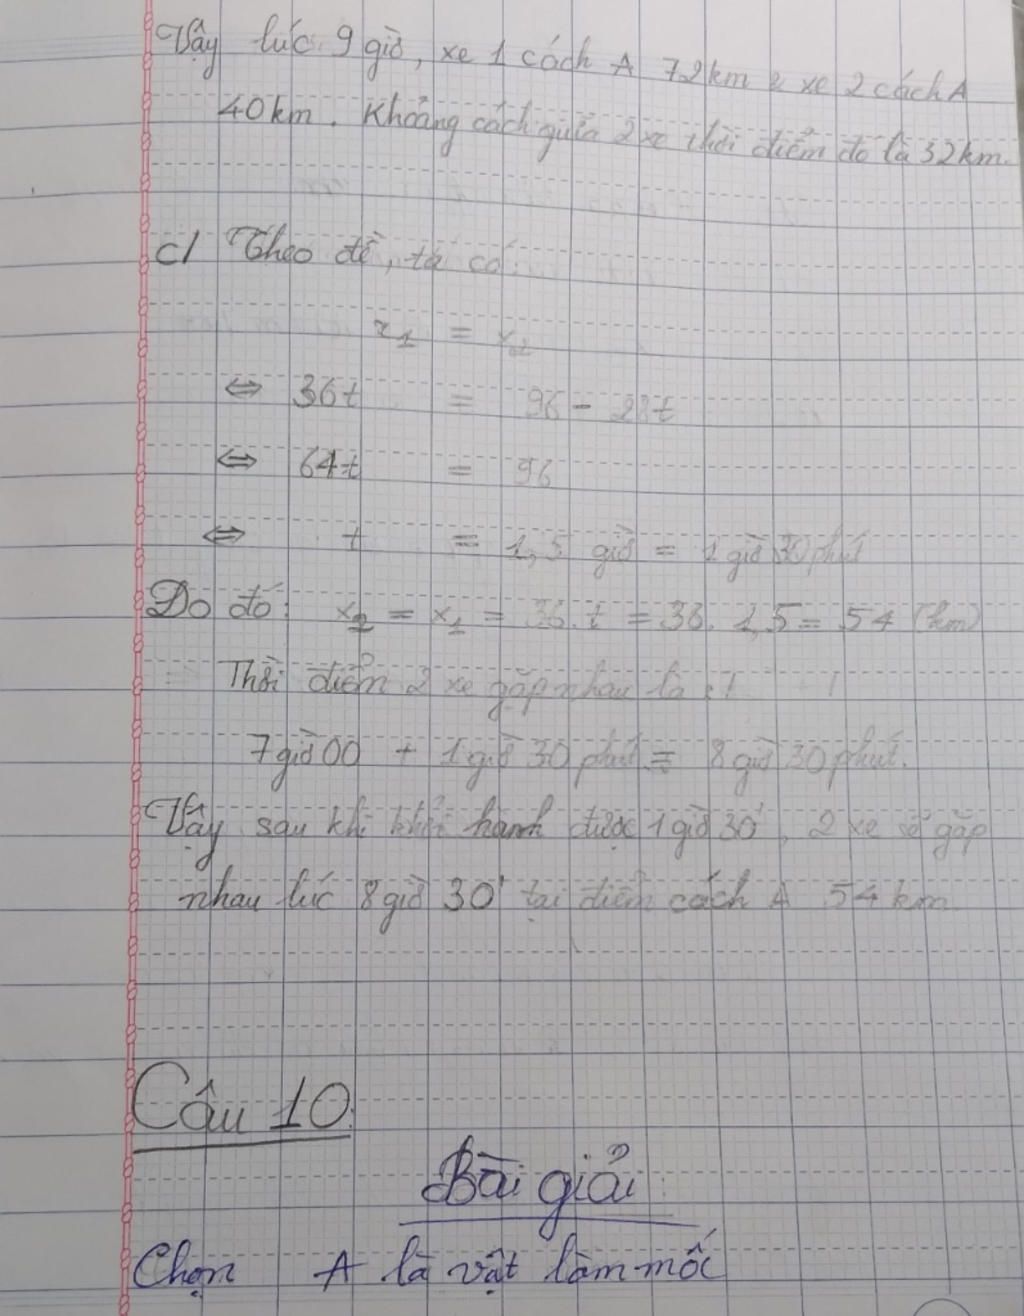 Vậy lúc 9 giờ, xe 1 cách A 72km & xe 2 cách A
40km. Khoảng cách giữa 2 xe thời điểm đó là 32km.
c/ Theo đề, ta có:
x₁ = x₂
⇔ 36t = 96 - 28t
⇔ 64t = 96
⇔ t = 1,5 giờ = 1 giờ 30 phút
Do đó: x₂ = x₁ = 36.t = 36.1,5 = 54 (km)
Thời điểm 2 xe gặp nhau là:
7 giờ 00 + 1 giờ 30 phút = 8 giờ 30 phút.
Vậy sau khi khởi hành được 1 giờ 30', 2 xe sẽ gặp
nhau lúc 8 giờ 30' tại điểm cách A 54 km
Câu 10.
Bài giải
Chọn A là vật làm mốc